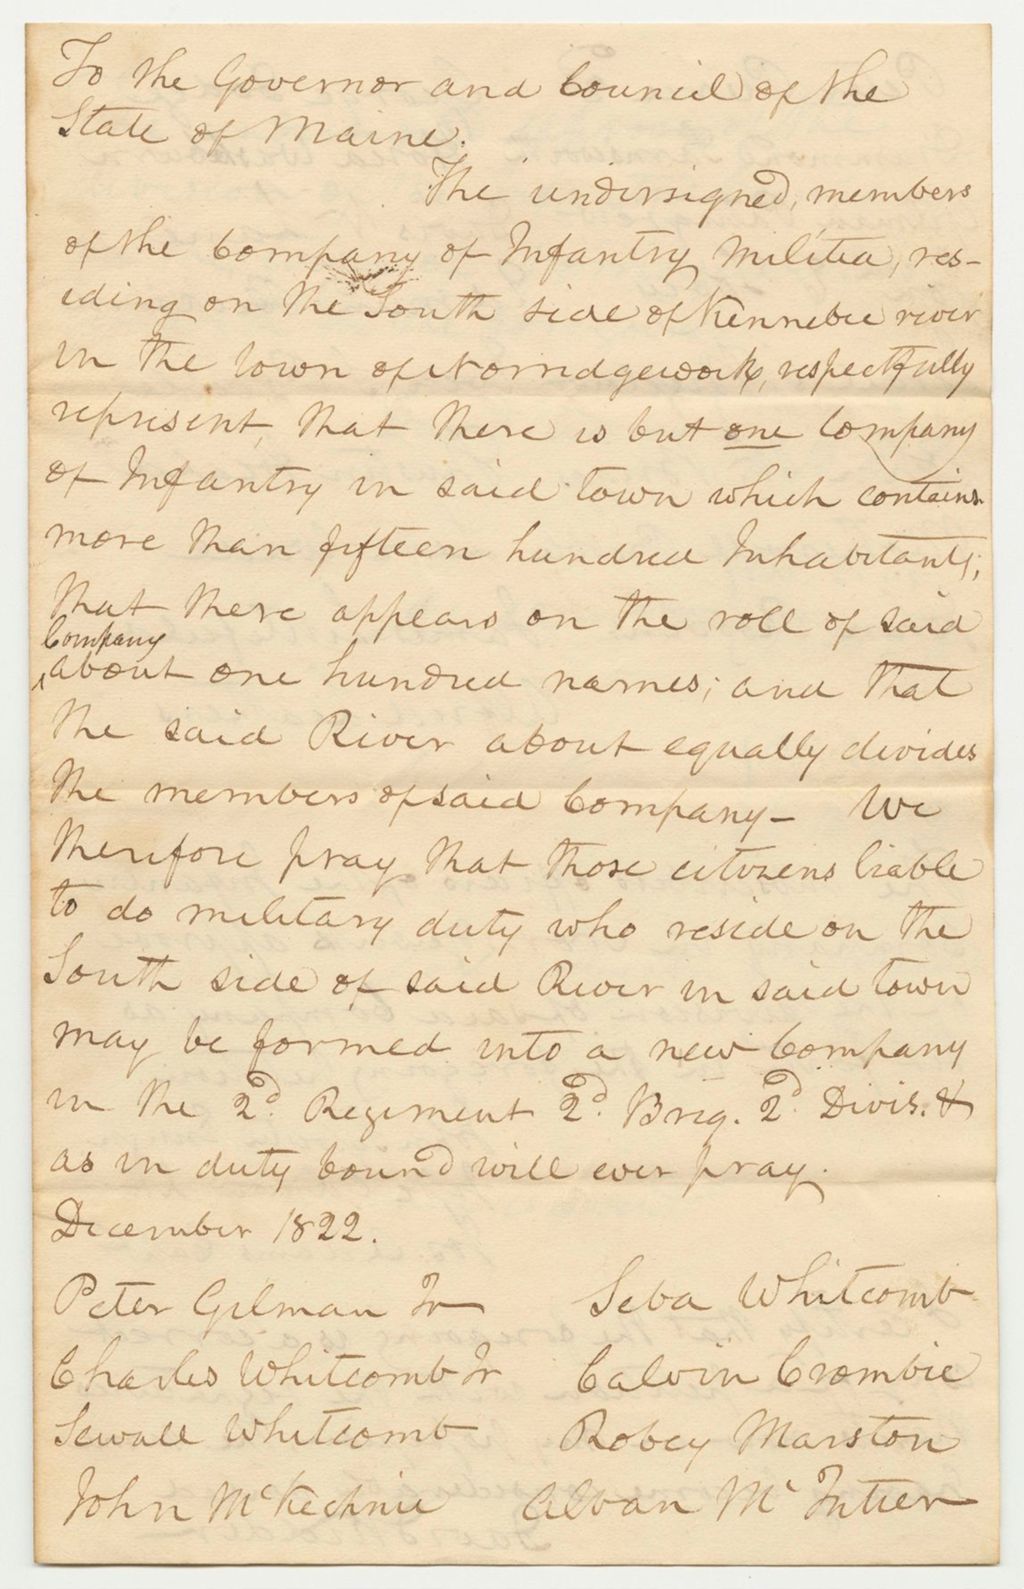 To the Governor and Council of the
State of Maine.
The undersigned, members
of the Company of Infantry Militia, res-
iding on the South side of Kennebec river
in the town of Norridgework, respectfully
represent, that there is but one Company
of Infantry in said town which contains
more than fifteen hundred Inhabitants;
that there appears on the roll of said
Company
^about one hundred names; and that
the said River about equally divides
the members of said Company - We
therefore pray that those citizens liable
to do military duty who reside on the
South side of said River in said town
may be formed into a new Company
in the 2d. Regiment 2d. Brig. 2d. Divis. &
as in duty bound will ever pray.
December 1822.
Peter Gilman Jr Seba Whitcomb
Charles Whitcomb Jr Calvin Crombie
Sewall Whitcomb Robey Marston
John McKechnie Alvan Mc Intier